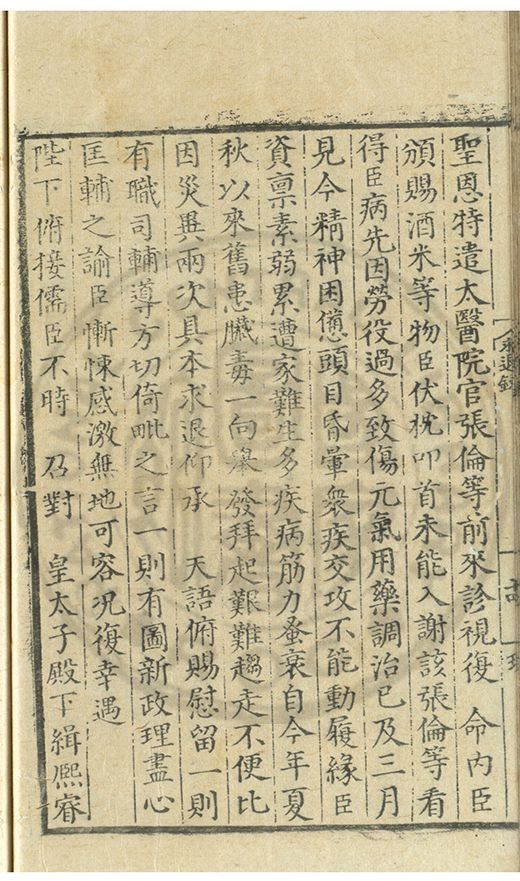 聖恩特遣太醫院官張倫等前來診視復　命內臣
頒賜酒米等物臣伏枕叩首未能入謝該張倫等看
得臣病先因勞役過多致傷元氣用藥調治已及三月
見今精神困憊頭目昏暈衆疾交攻不能動履緣臣
資禀素弱累遭家難生多疾病筋力蚤衰自今年夏
秋以來舊患臟毒一向舉發拜起艱難趨走不便比
因災異兩次具本求退仰承　天語俯賜慰留一則
有職司輔導方切倚毗之言一則有圖新政理盡心
匡輔之諭臣慚悚感激無地可容况復幸遇
陛下俯接儒臣不時　召對　皇太子殿下緝熙睿